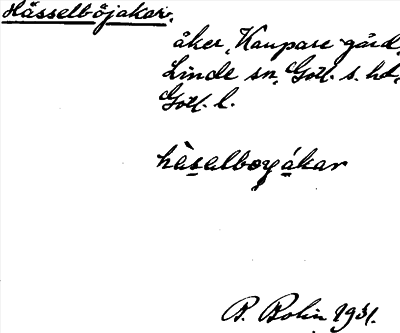 Hässelböjakar.
åker, Kaupare gård,
Linde sn, Gotl. s. hd,
Gotl. l.
hèsalboyákar
B. Bolin 1931.